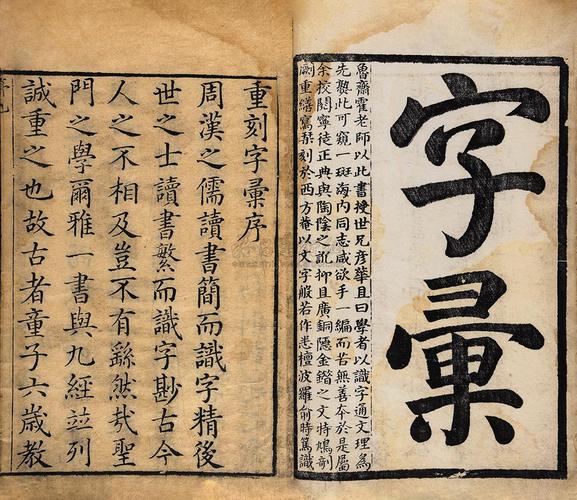 字彙
魯齋霍老師以此書授世兄彥華且曰學者以識字通文理為
先爇此可窺一斑海内同志咸欲手一編而苦無善夲於是屬
余挍閱寧徒正典與陶陰之訛抑且廣銅隱金鍇之文特鳩剞
劂重繕寫棗刻於西方菴以文字般若作悉檀波羅俞時篤識
重刻字彙序
周漢之儒讀書簡而識字精後
世之士讀書繁而識字尠古今
人之不相及豈不有繇然㦲聖
門之學爾雅一書與九經並列
誠重之也故古者童子六歲教